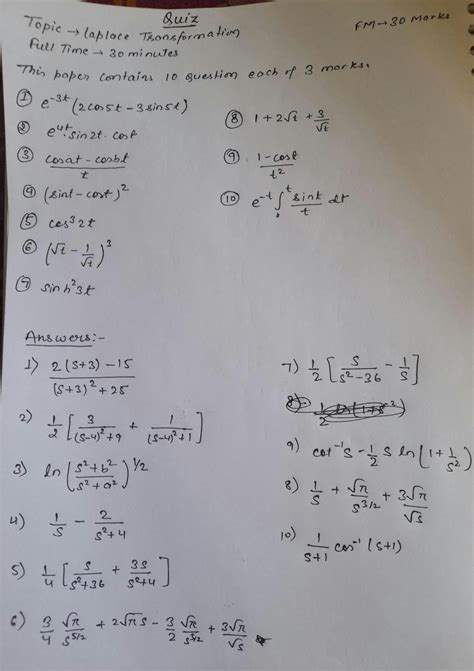 Quiz
Topic → Laplace Transformation
FM → 30 Marks
Full Time → 30 minutes
This paper contains 10 question each of 3 marks.
① e^{-3t}(2cos5t - 3sin5t)
② e^{4t}. sin2t. cost
③ \frac{cosat - cosbt}{t}
④ (sint - cost)^2
⑤ cos^3 2t
⑥ (√t - \frac{1}{√t})^3
⑦ sinh^2 3t
⑧ 1 + 2√t + \frac{3}{√t}
⑨ \frac{1 - cost}{t^2}
⑩ e^{-t} ∫_0^t \frac{sint}{t} dt
Answers:-
1) \frac{2(s+3) - 15}{(s+3)^2 + 25}
2) \frac{1}{2} [\frac{3}{(s-4)^2+9} + \frac{1}{(s-4)^2+1}]
3) ln (\frac{s^2+b^2}{s^2+a^2})^{1/2}
4) \frac{1}{s} - \frac{2}{s^2+4}
5) \frac{1}{4} [\frac{s}{s^2+36} + \frac{3s}{s^2+4}]
6) \frac{3}{4} \frac{√π}{s^{5/2}} + 2√πs - \frac{3}{2} \frac{√π}{s^{3/2}} + \frac{3√π}{√s}
7) \frac{1}{2} [\frac{s}{s^2-36} - \frac{1}{s}]
9) cot^{-1}s - \frac{1}{2} s ln(1 + \frac{1}{s^2})
8) \frac{1}{s} + \frac{√π}{s^{3/2}} + \frac{3√π}{√s}
10) \frac{1}{s+1} cos^{-1}(s+1)